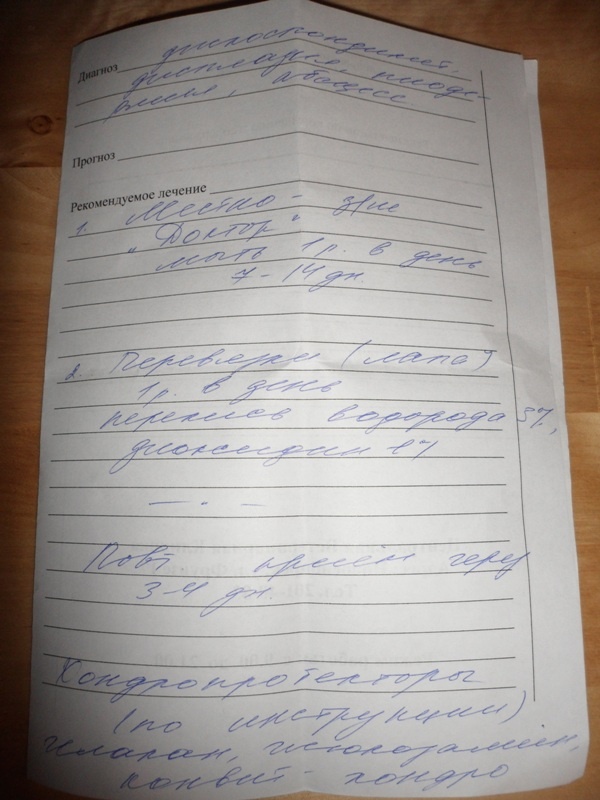 Диагноз дископондилит,
дисплазия, пиоде-
рмия, абсцесс
Прогноз
Рекомендуемое лечение
1. Местно -
"Доктор"
мыть 1 р. в день
7-14 дн.
2. Перевязки (лапа)
1 р. в день
перекись водорода 3%,
диоксидин 1%
Повт прием через
3-4 дн.
Хондропротекторы
(по инструкции)
глюкозамин,
хондро